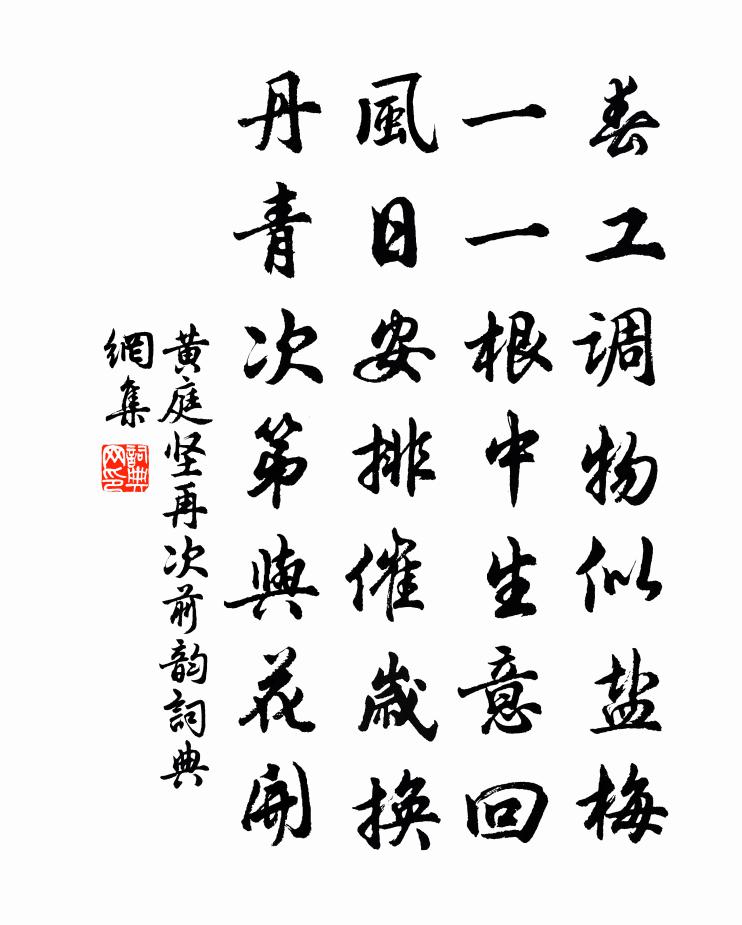 春工调物似盐梅
一一根中生意回
風日安排催歲換
丹青次第與花開
黄庭坚再次前韵詞典
網集
詞典
网印